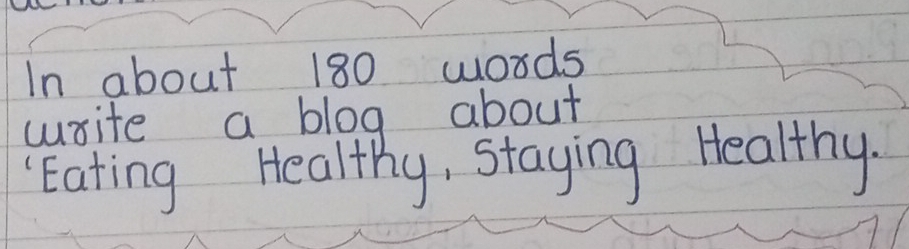 In about 180 words
write a blog about
'Eating Healthy, Staying Healthy.